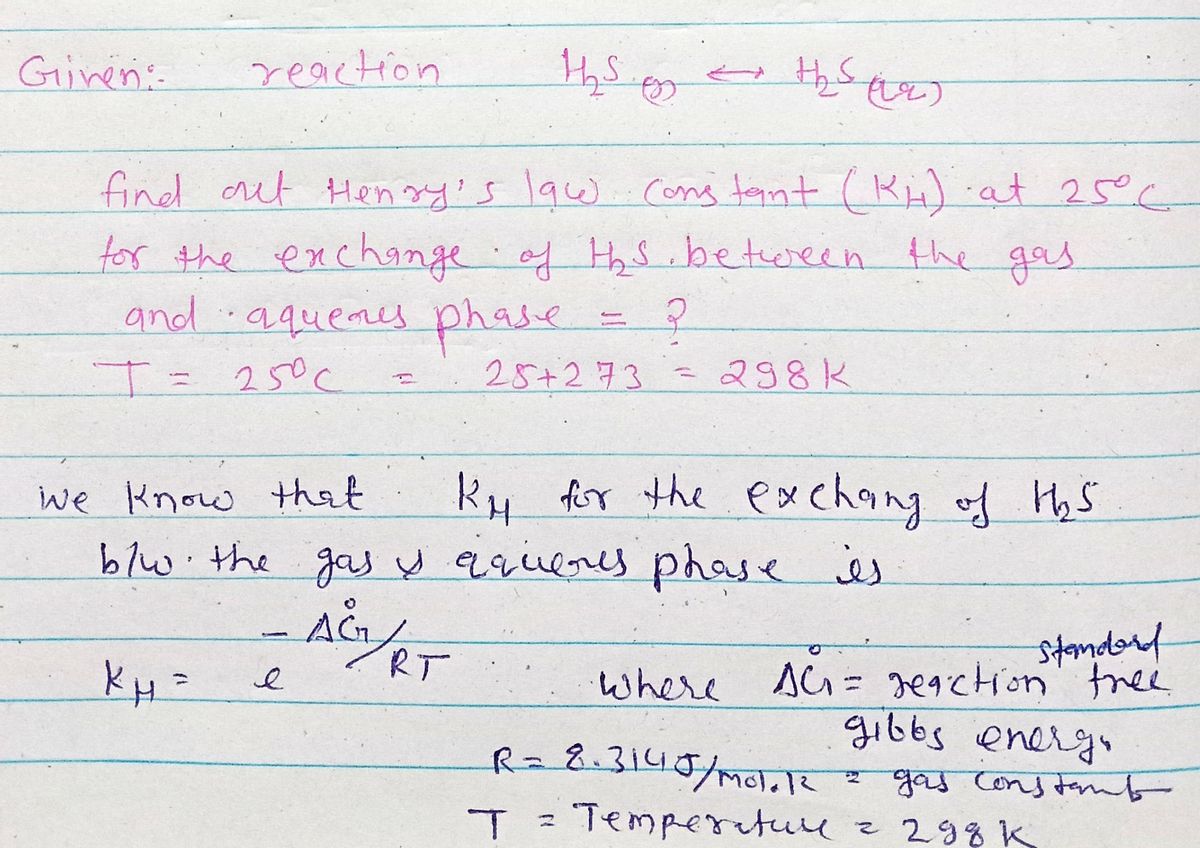 Given:- reaction H₂S (g) ↔ H₂S (aq)
find out Henry's law constant (KH) at 25°C
for the exchange of H₂S between the gas
and aqueous phase = ?
T = 25°C = 25+273 = 298K
We know that KH for the exchang of H₂S
b/w the gas & aqueous phase is
KH = e^(-ΔG°/RT) where ΔG° = reaction standard free
gibbs energy
R = 8.314J/mol.k = gas constant
T = Temperature = 298K